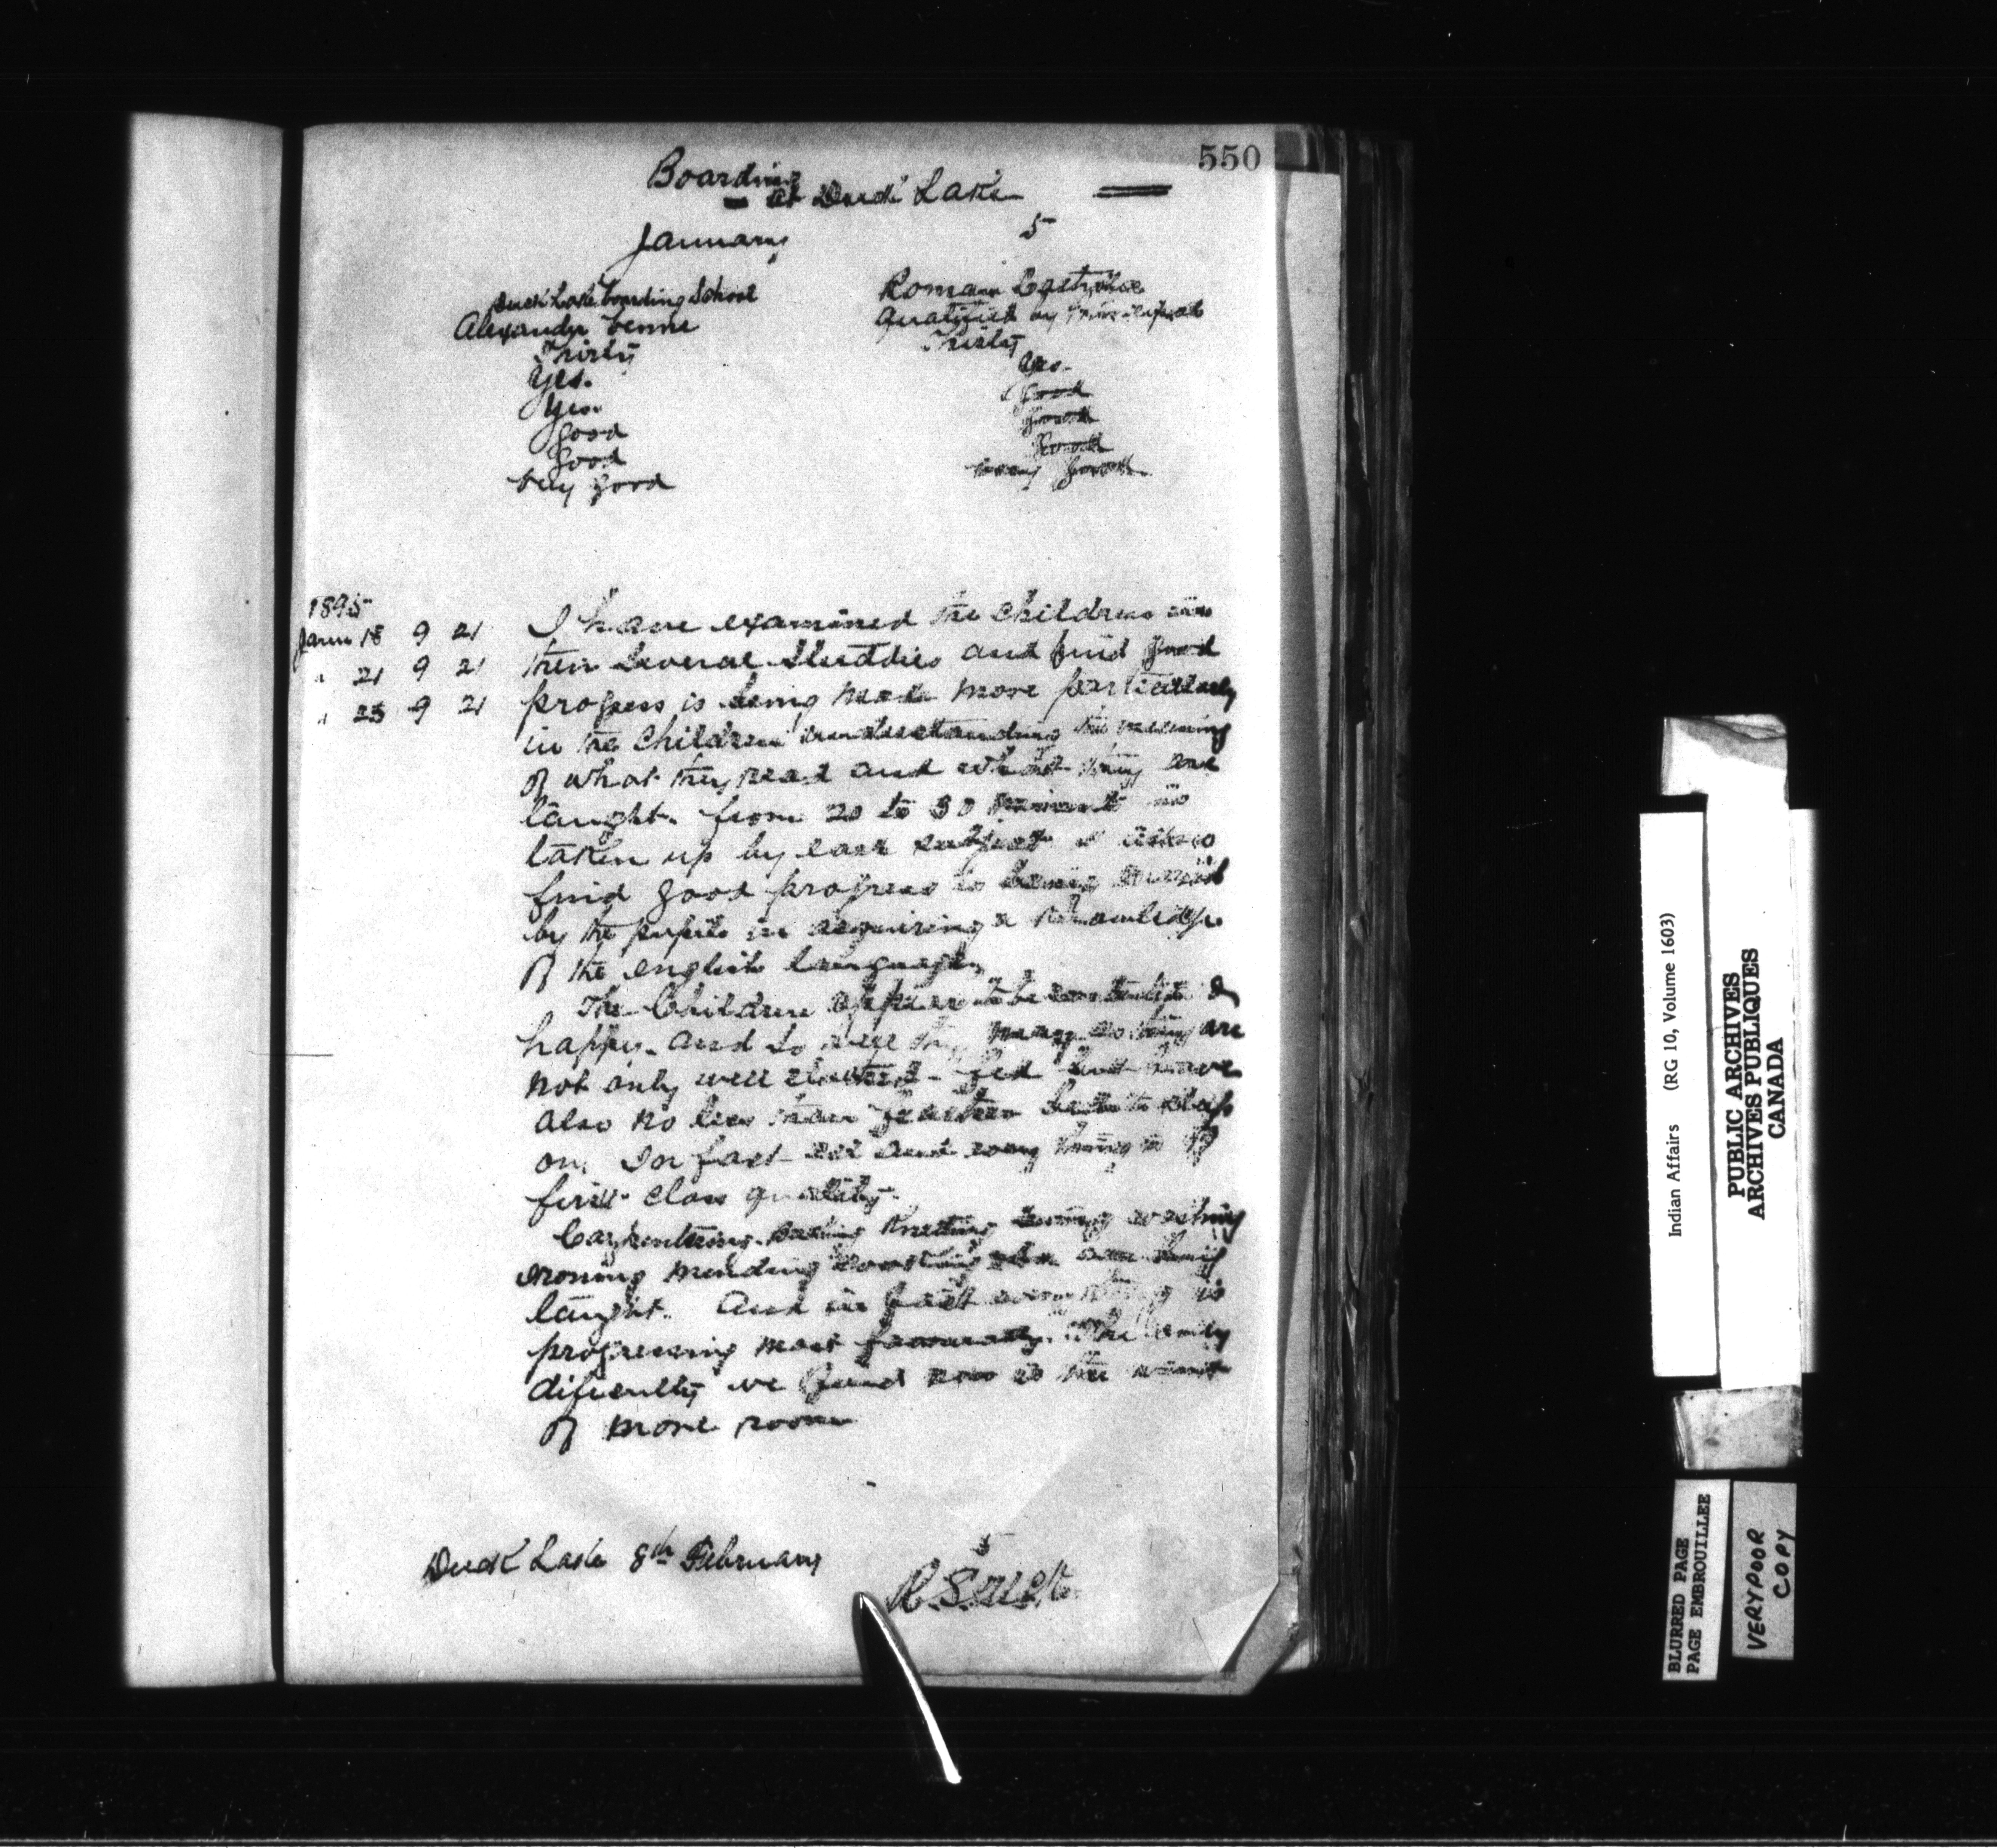 550
Boarding
at Duck Lake
January 5
Duck Lake boarding School Roman Catholic
Alexander Qualified by Principal
Thirty Thirty
Yes. Yes.
Yes. good
good good
good good
very good very good
1895
Janu 18 9 21 I have examined the children in
" 21 9 21 their several studdies and find good
" 23 9 21 progress is being made more particularly
in the children understanding the meaning
of what they read and what they are
taught. from 20 to 30 minuets is
taken up by each subject I also
find good progress is being made
by the pupils in acquiring a knowledge
of the english language
The Children appear to be &
happy. and so well they may as they are
not only well clothed - fed but have
also no less than feather beds to sleep
on, In fact all and every thing is of
first class quality.
Carpentering. Knitting sewing washing
ironing mending are being
taught. And in fact everything is
progressing most favourably. The only
dificulty we find now is the want
of more room
Duck Lake 8th February 5
R.S.
Indian Affairs (RG 10, Volume 1603)
PUBLIC ARCHIVES
ARCHIVES PUBLIQUES
CANADA
BLURRED PAGE
PAGE EMBROUILLEE
VERY POOR
COPY